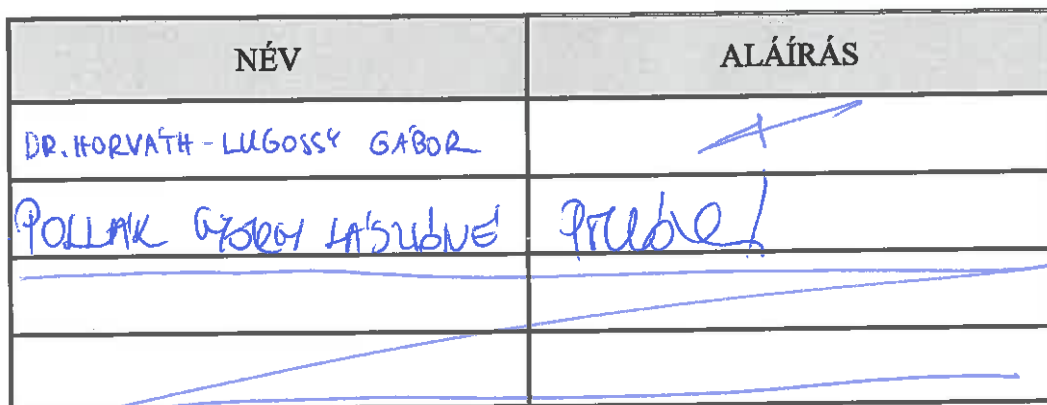 NÉV ALÁÍRÁS
DR. HORVÁTH - LUGOSSY GÁBOR
POLLÁK GYÖRGY LÁSZLÓNÉ